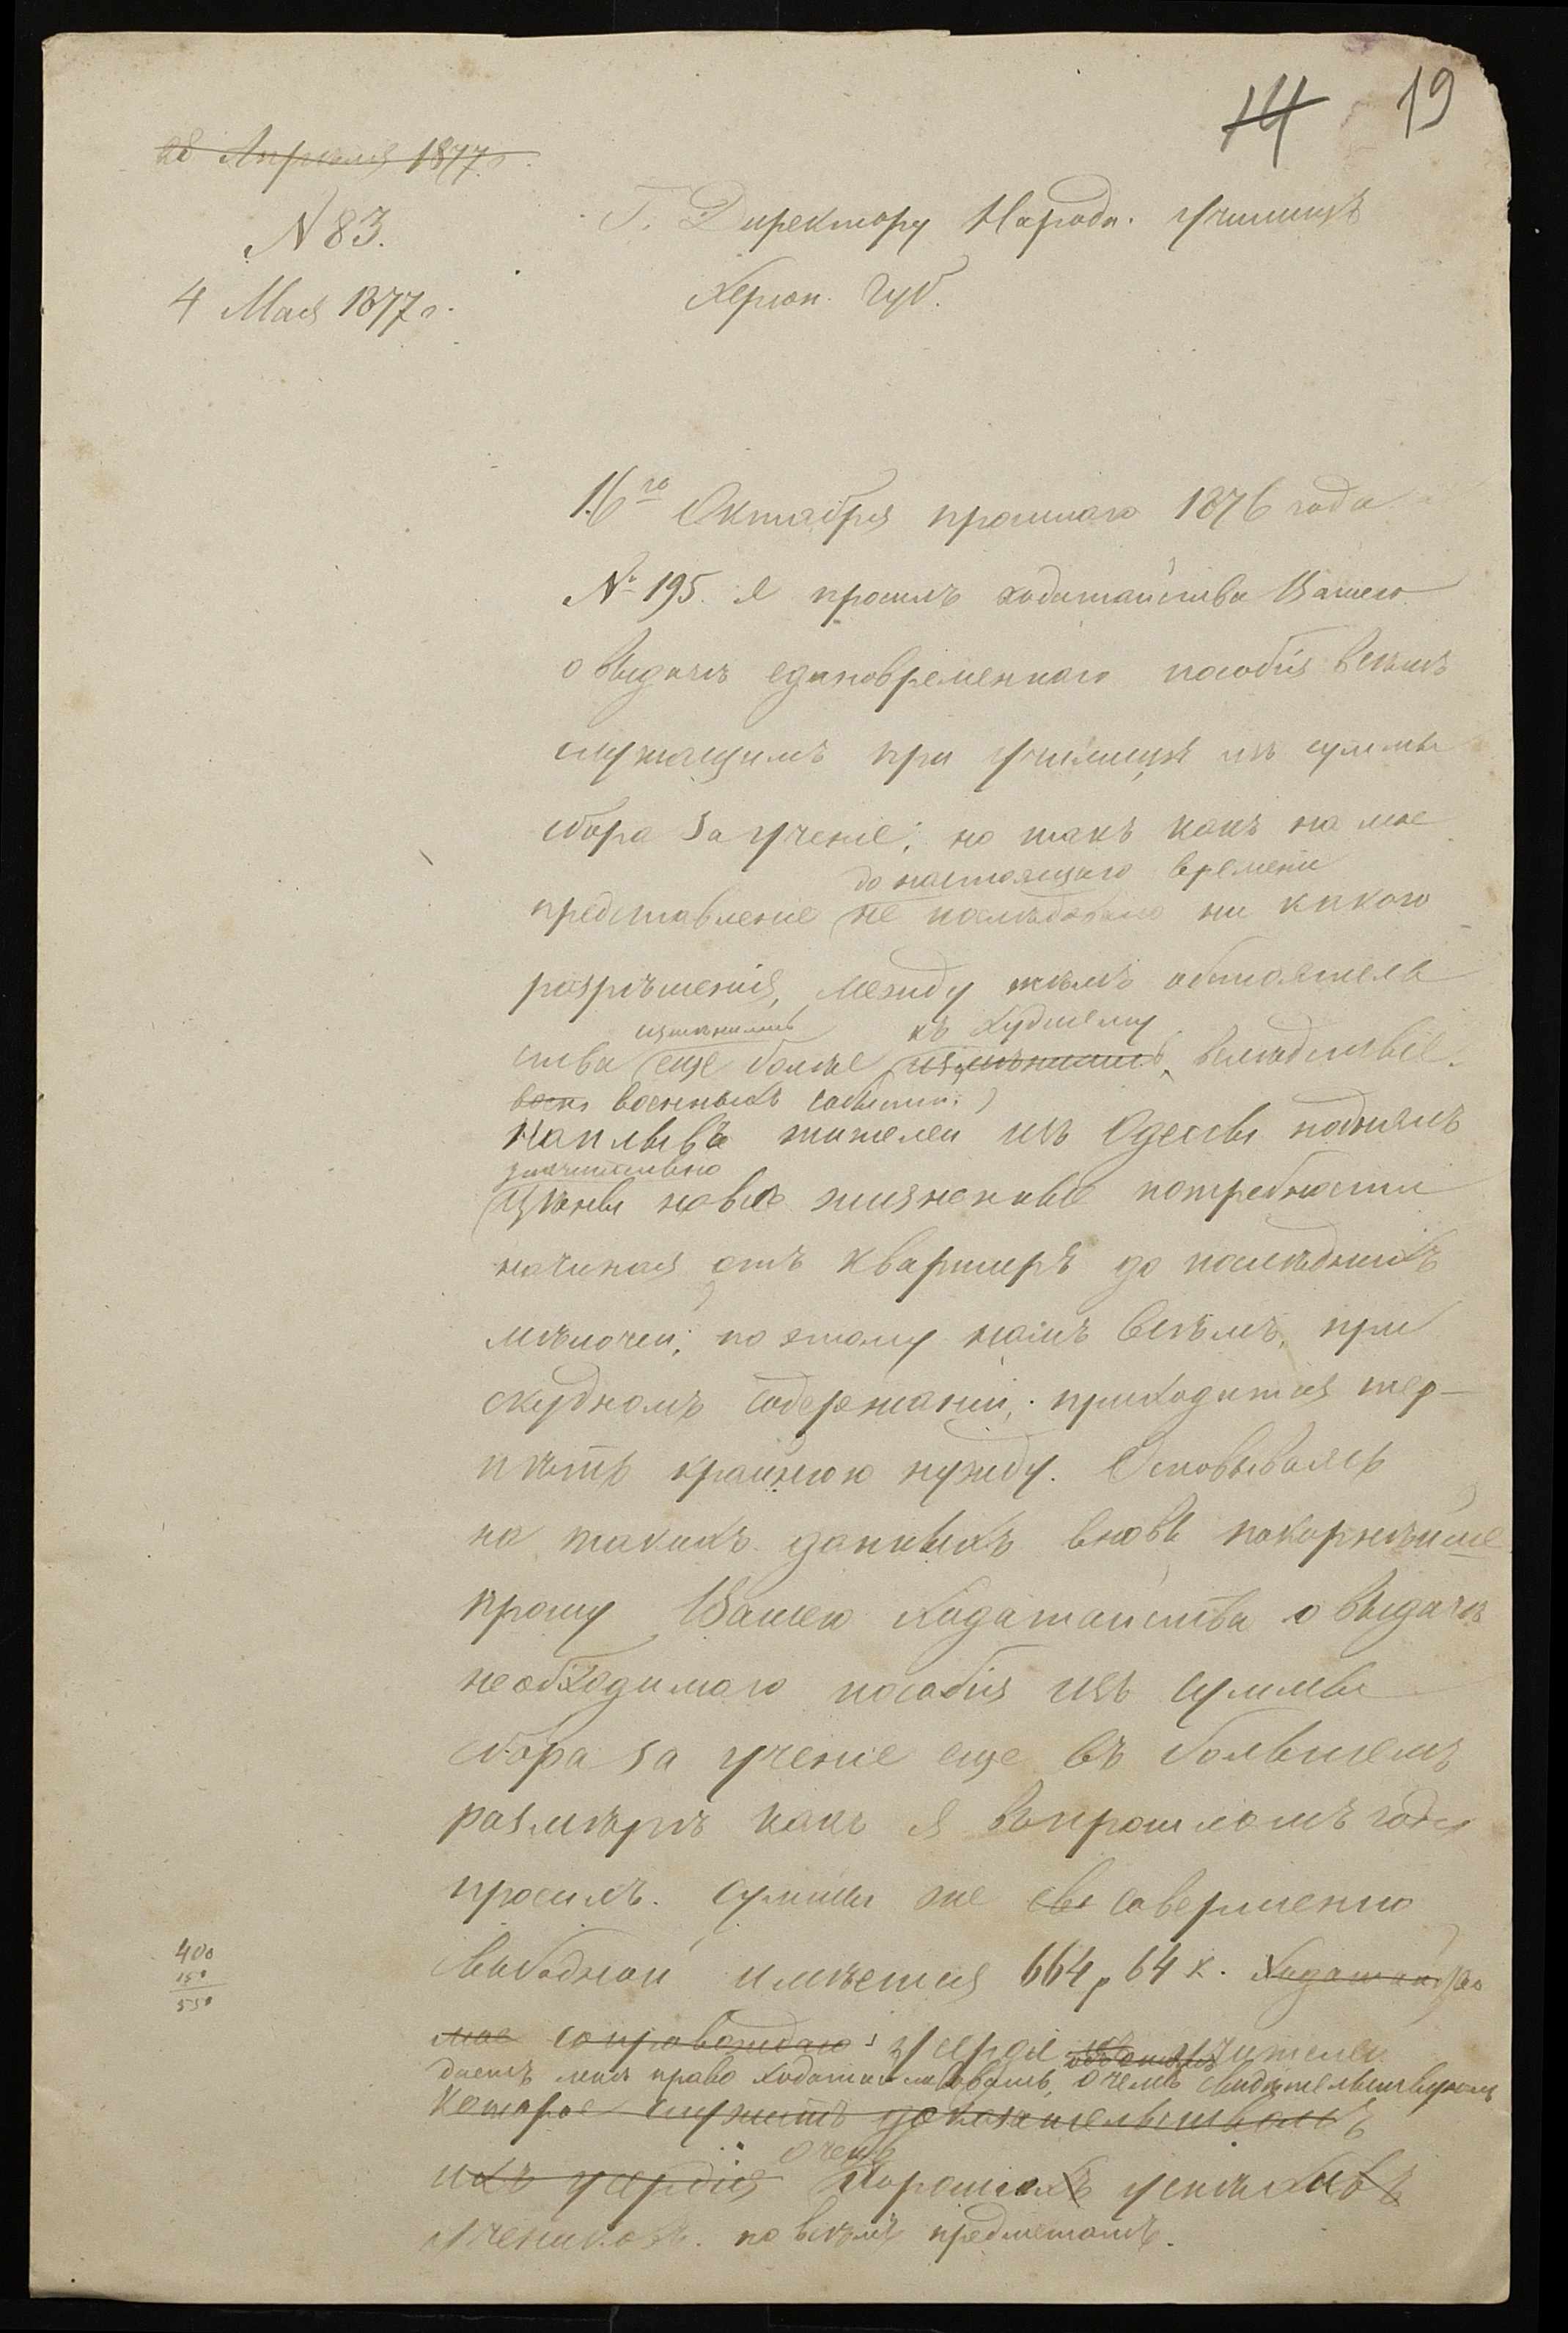 14 19
28 Апреля 1877 г.
N 83.
4 Мая 1877 г.
Г. Директору Народн. Училищъ
Херсон. Губ.
16го Октября прошлаго 1876 года
№ 195 я просилъ ходатайства Вашего
о выдачѣ единовременнаго пособія всѣмъ
служащимъ при училищѣ изъ суммы
сбора за ученіе; но такъ какъ на мое
до настоящаго времени
представленіе не послѣдовало ни какого
разрѣшенія, между тѣмъ обстоятель
измѣнились къ худшему
ства еще болѣе измѣнились вслѣдствіе
воен военныхъ событій
Наплывъ жителей изъ Одессы поднялъ
значительно
цѣны на всѣ жизненные потребности
начиная отъ квартиръ до послѣднихъ
мѣлочей; по этому намъ всѣмъ, при
скудномъ содержаніи, приходится тер-
пѣть крайнюю нужду. Основываясь
на такихъ данныхъ вновь покорнѣйше
прошу Вашего ходатайства о выдачѣ
необходимаго пособія изъ суммы
сбора за ученіе еще въ большемъ
размѣрѣ какъ я въ прошломъ году
просилъ. Суммы же сво совершенно
свободной имѣется 664 р 64 к. Ходатайство
400
150
550
мое сопровождаю усердіе учителей
даетъ мнѣ право ходатайствовать, о чемъ свидѣтельствуютъ
Которое служитъ доказательствомъ
очень
ихъ усердія хорошихъ успѣховъ
учениковъ по всѣмъ предметамъ.